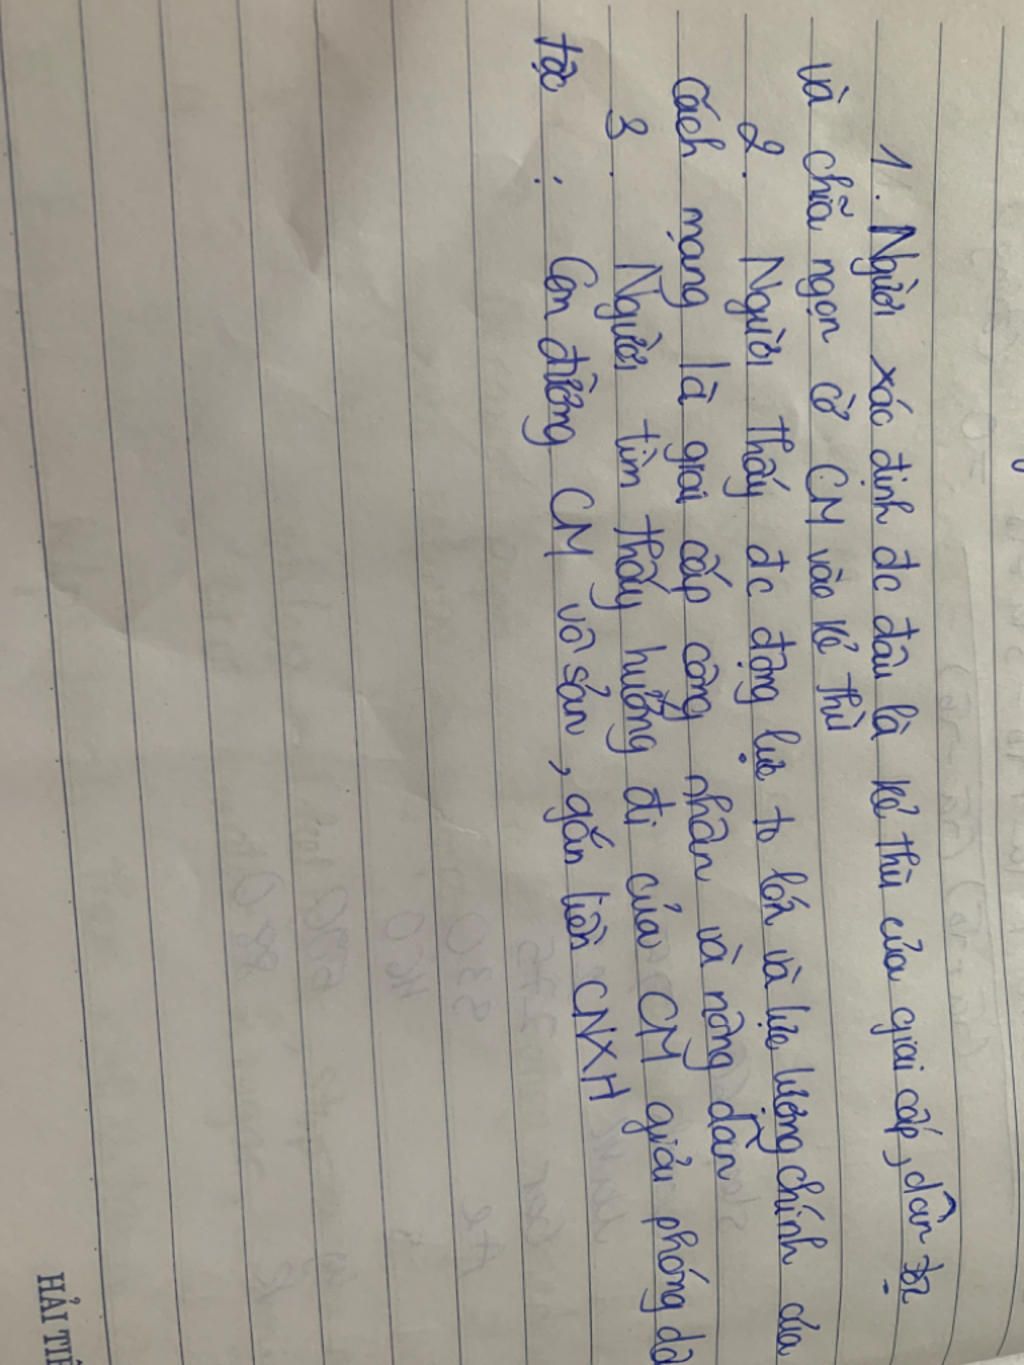 1. Người xác định đc đâu là kẻ thù của giai cấp, dân tộc
và chĩa ngọn cờ CM vào kẻ thù
2. Người thấy đc động lực to lớn và lực lượng chính của
Cách mạng là giai cấp công nhân và nông dân
3. Người tìm thấy hướng đi của CM giải phóng dâ
tộc : Con đường CM vô sản, gắn liền CNXH
HẢI TIẾ